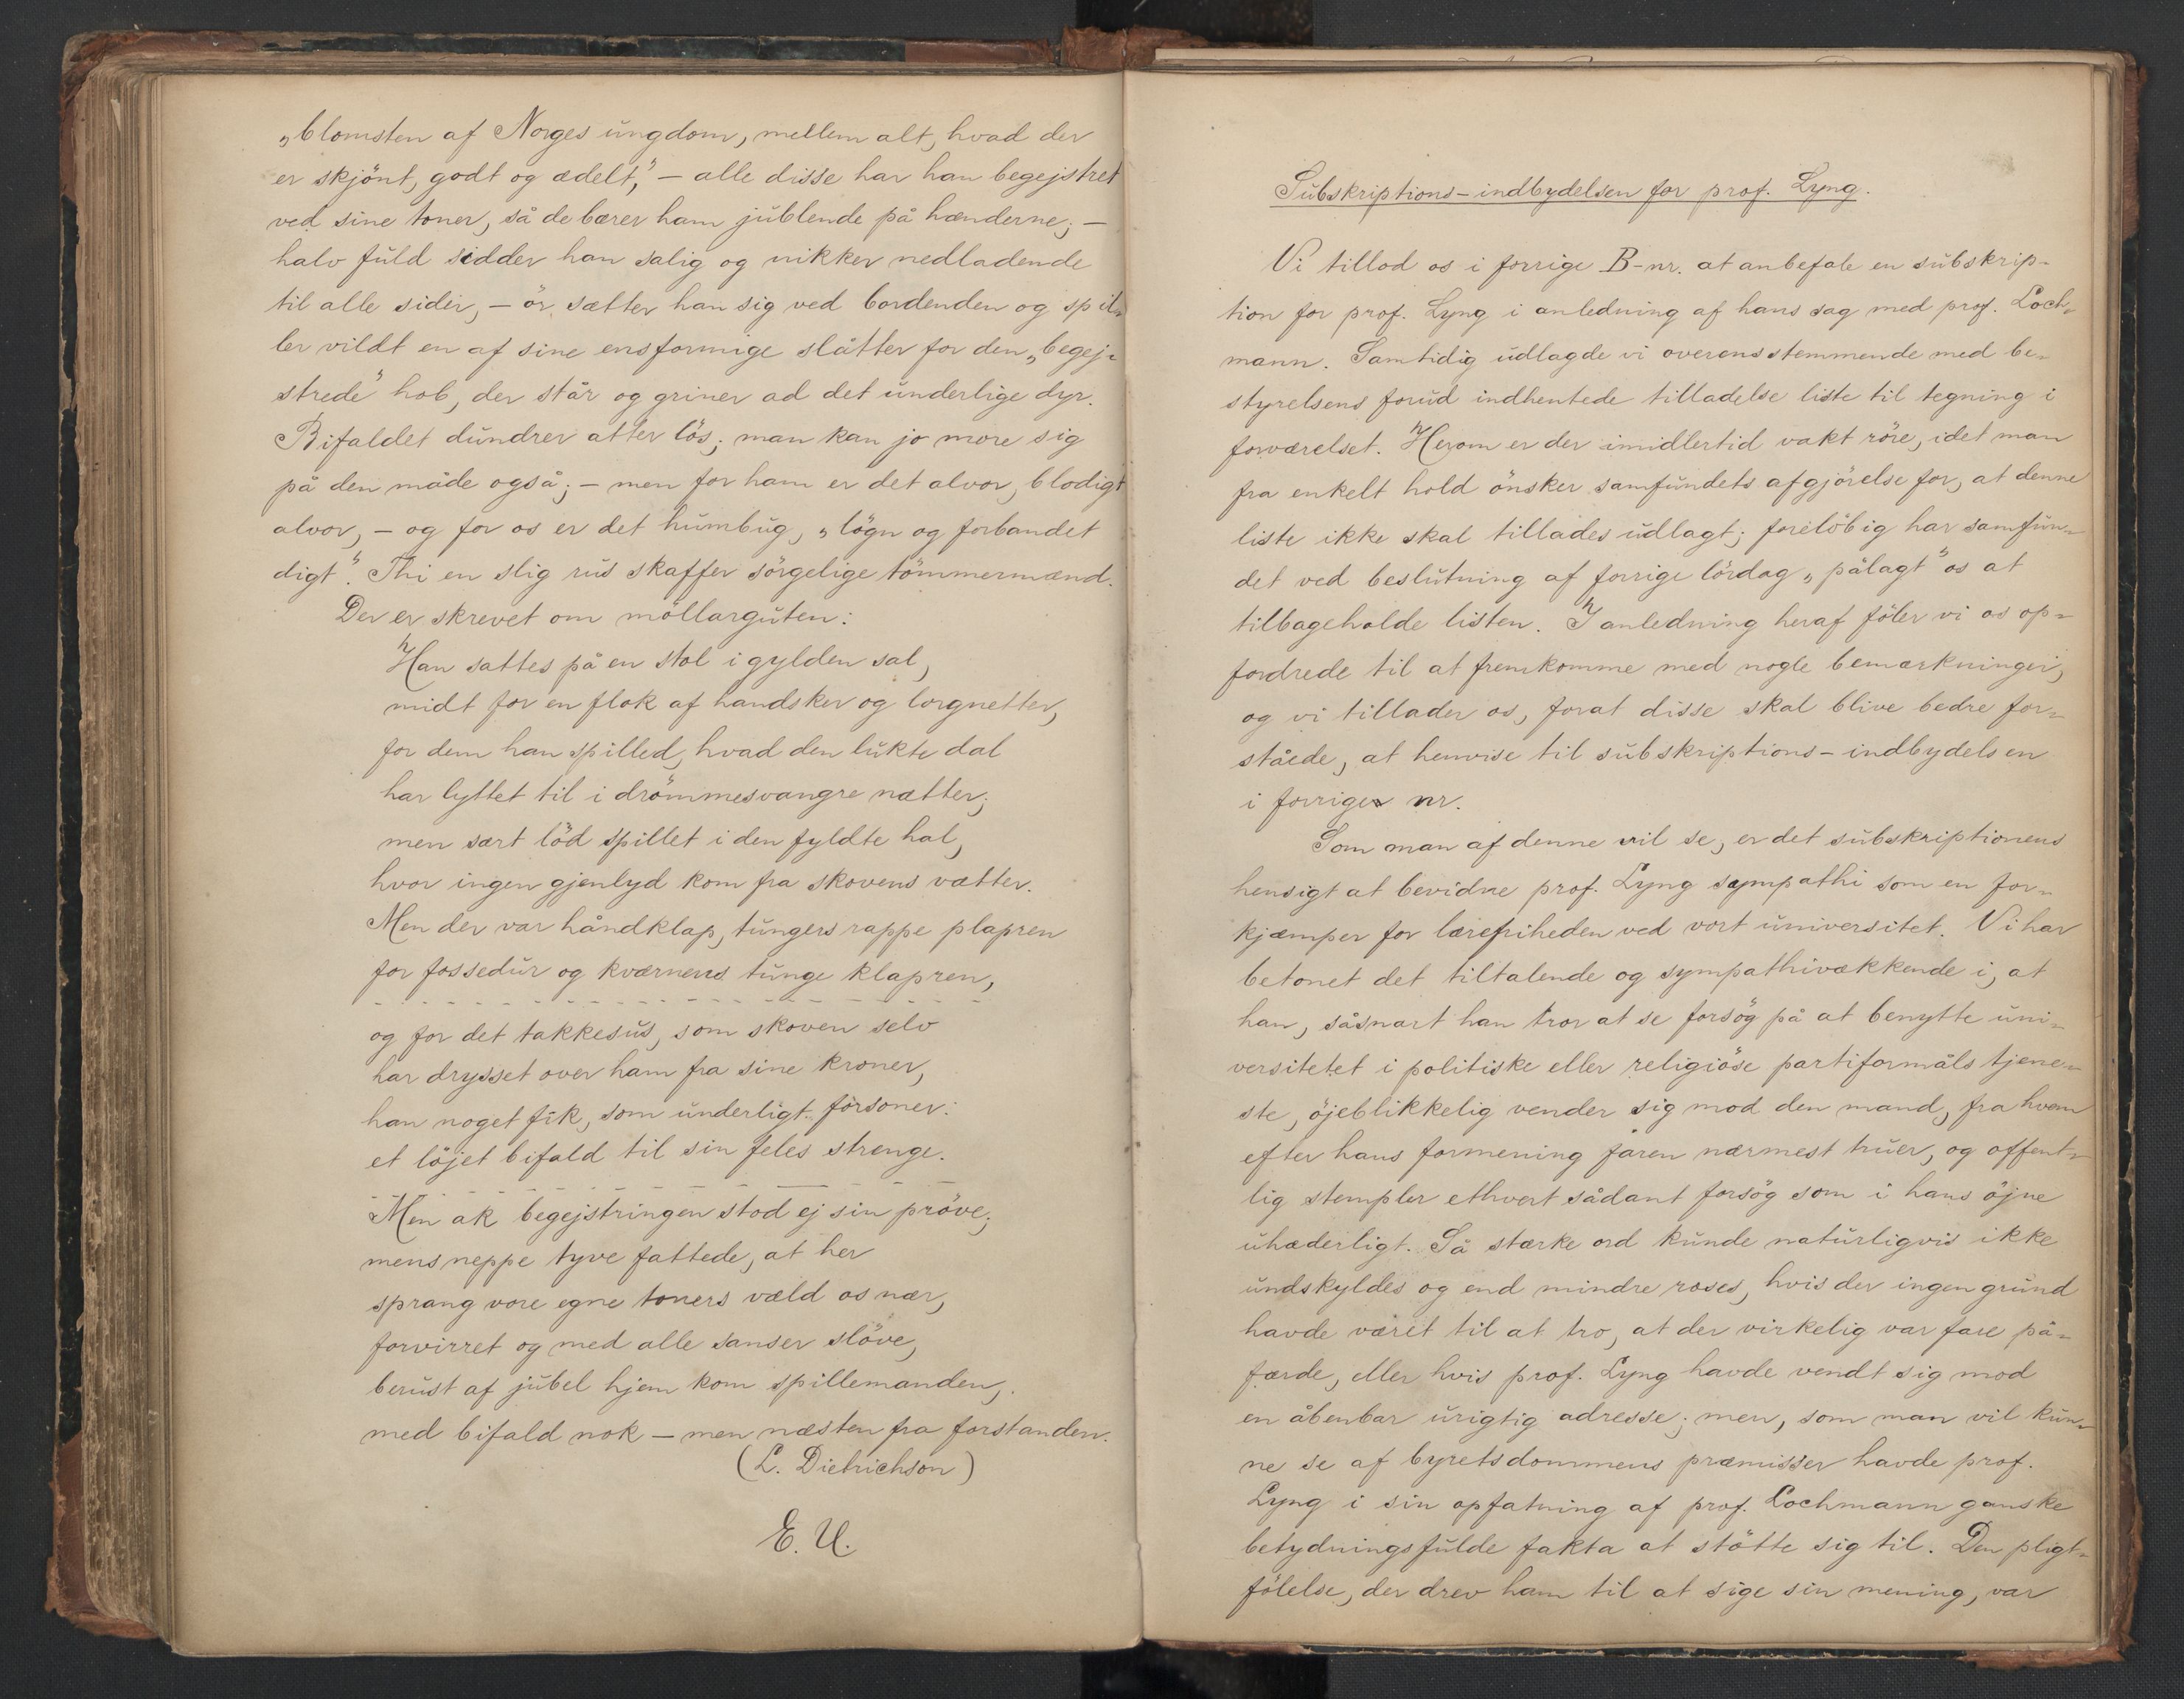 „blomsten af Norges ungdom, mellem alt, hvad der
er skjönt, godt og ædelt,” – alle disse har han begejstret
ved sine toner, så de bærer ham jublende på hænderne; –
halv fuld sidder han salig og nikker nedladende
til alle sider, – ör sætter han sig ved bordenden og spil-
ler vildt en af sine ensformige slåtter for den „begej-
strede” hob, der står og griner ad det underlige dyr.
Bifaldet dundrer atter lös; man kan jo more sig
på den måde også; – men for ham er det alvor, blodigt
alvor, – og for os er det humbug, „lögn og forbandet
digt”. Thi en slig rus skaffer sörgelige tömmermænd.
Der er skrevet om möllarguten:
Han sattes på en stol i gylden sal,
midt for en flok af handsker og lorgnetter,
for dem han spilled, hvad den lukte dal
har lyttet til i drömmesvangre nætter;
men sært löd spillet i den fyldte hal,
hvor ingen gjenlyd kom fra skovens vætter.
Men der var håndklap, tungers rappe plapren
for fossedur og kværnens tunge klapren,
- - - - - - - - - - - - - - - -
og for det takkesus, som skoven selv
har drysset over ham fra sine kroner,
han noget fik, som underligt försoner:
et löjet bifald til sin feles strenge.
- - - - - - - - - - - - - - - -
Men ak begejstringen stod ej sin pröve;
mens neppe tyve fattede, at her
sprang vore egne toners væld os nær,
forvirret og med alle sanser slöve,
berust af jubel hjem kom spillemanden,
med bifald nok – men næsten fra forstanden.
(L. Dietrichson)
E. U.
Subskriptions-indbydelsen for prof. Lyng.
Vi tillod os i forrige B-nr. at anbefale en subskrip-
tion for prof. Lyng i anledning af hans sag med prof. Loch-
mann. Samtidig udlagde vi overensstemmende med be-
styrelsens forud indhentede tilladelse liste til tegning i
forværelset. Herom er der imidlertid vakt röre, idet man
fra enkelt hold önsker samfundets afgjörelse for, at denne
liste ikke skal tillades udlagt; forelöbig har samfun-
det ved beslutning af forrige lördag „pålagt” os at
tilbageholde listen. I anledning heraf föler vi os op-
fordrede til at fremkomme med nogle bemærkninger,
og vi tillader os, forat disse skal blive bedre for-
ståede, at henvise til subskriptions-indbydelsen
i forrige nr.
Som man af denne vil se, er det subskriptionens
hensigt at bevidne prof. Lyng sympathi som en for-
kjæmper for lærefriheden ved vort universitet. Vi har
betonet det tiltalende og sympathivækkende i, at
han, såsnart han tror at se forsög på at benytte uni-
versitetet i politiske eller religiöse partiformåls tjene-
ste, öjeblikkelig vender sig mod den mand, fra hvem
efter hans formening faren nærmest truer, og offent-
lig stempler ethvert sådant forsög som i hans öjne
uhæderligt. Så stærke ord kunde naturligvis ikke
undskyldes og end mindre roses, hvis der ingen grund
havde været til at tro, at der virkelig var fare på-
færde, eller hvis prof. Lyng havde vendt sig mod
en åbenbar urigtig adresse; men, som man vil kun-
ne se af byretsdommens præmisser havde prof.
Lyng i sin opfatning af prof. Lochmann ganske
betydningsfulde fakta at stötte sig til. Den pligt-
fölelse, der drev ham til at sige sin mening, var